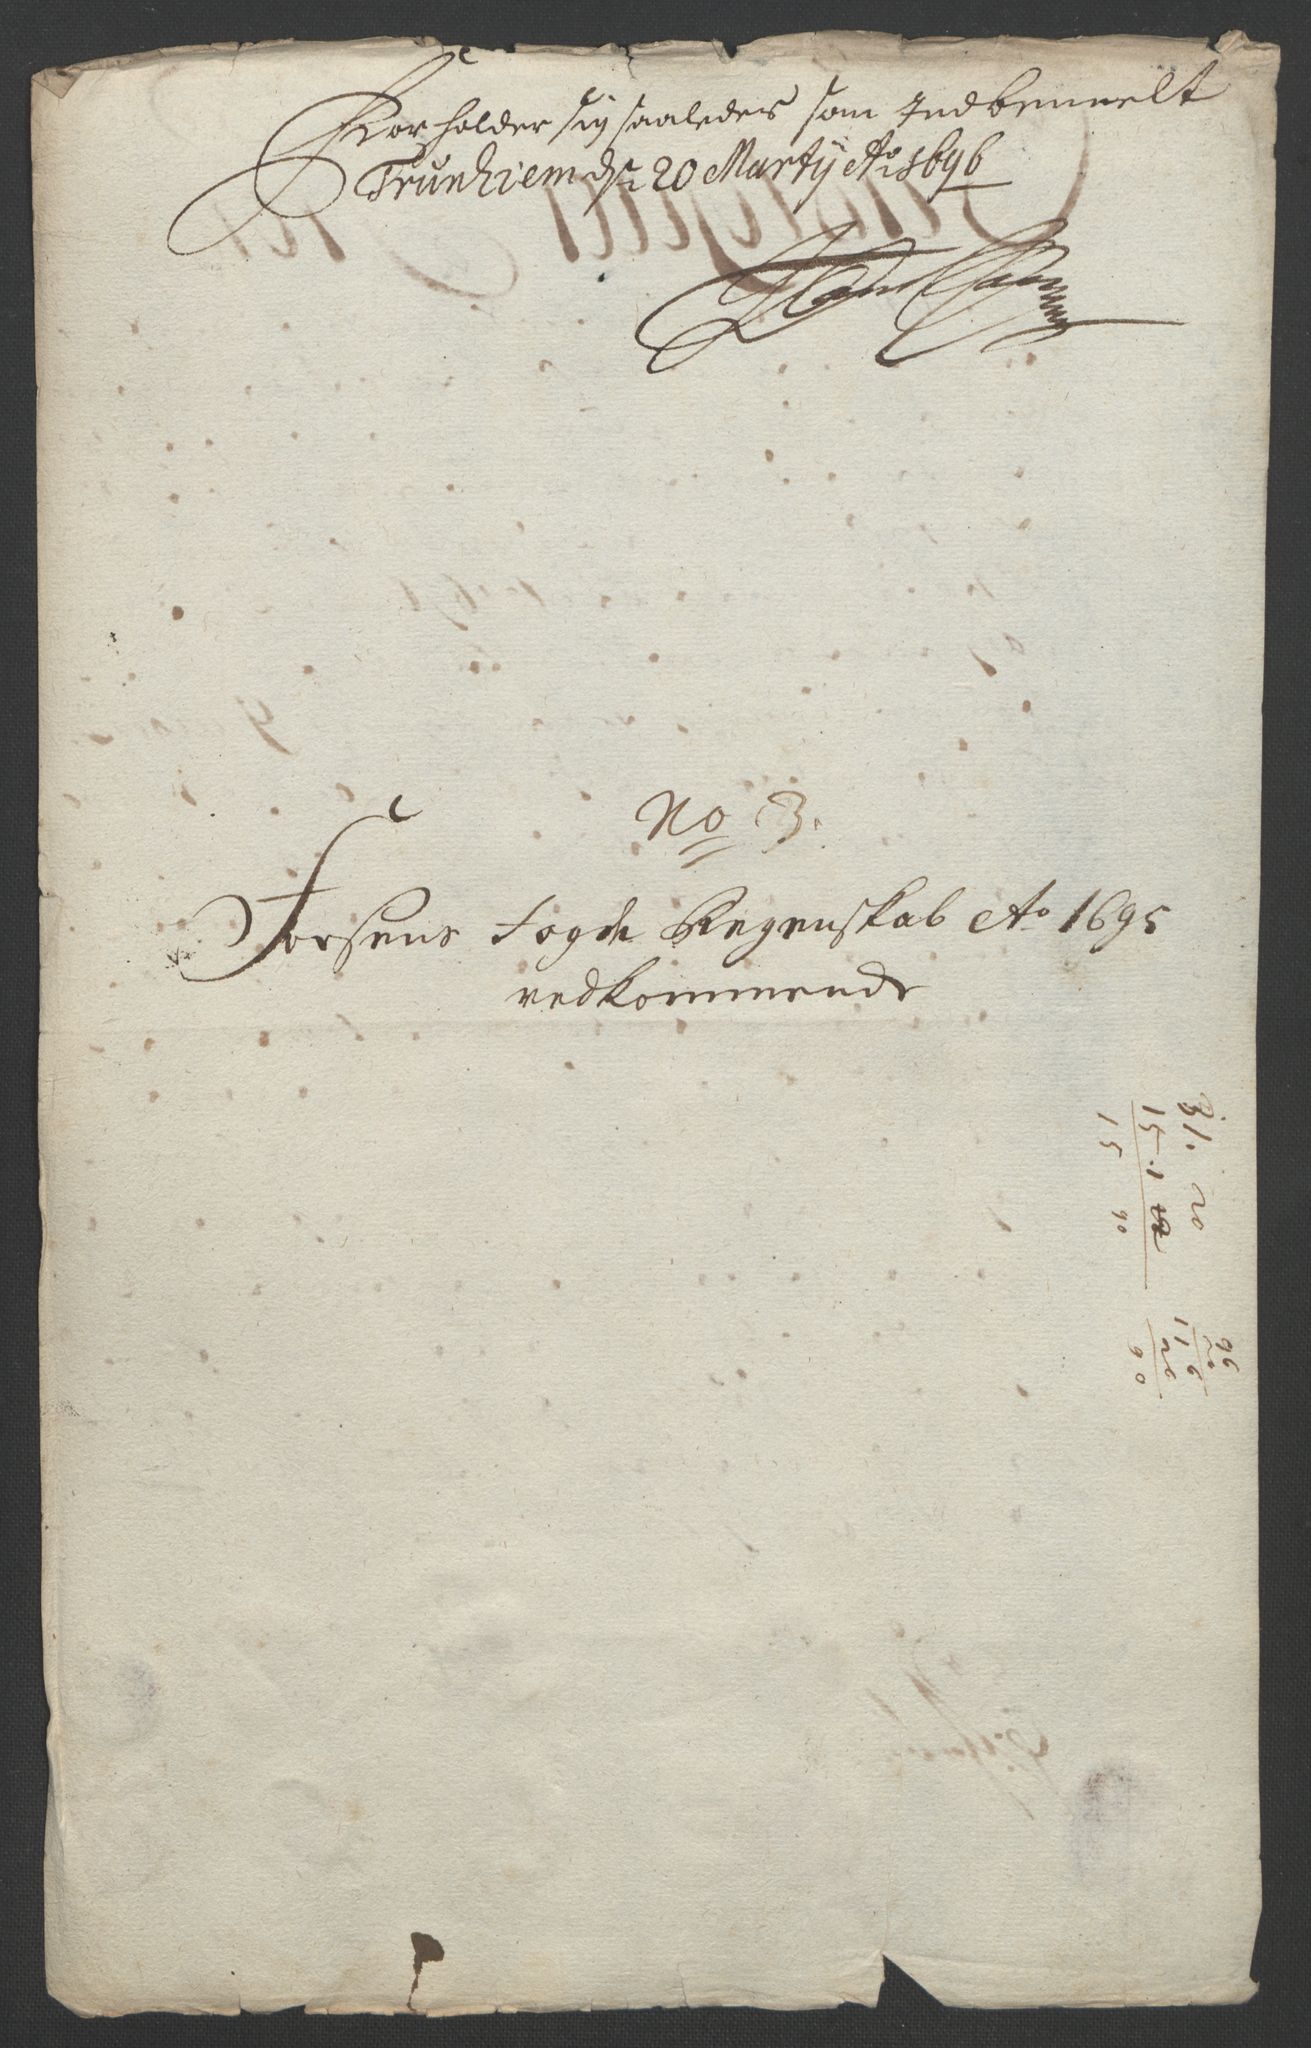 Forholder sig saaledes som Indbemelt
Trunhiem ds: 20 Martÿ Ao 1696
No 3.
Forsens fogde Regenskab Ao 1695
vedkommende
31. 20
15. 1
15 90
96
20
116
26
90